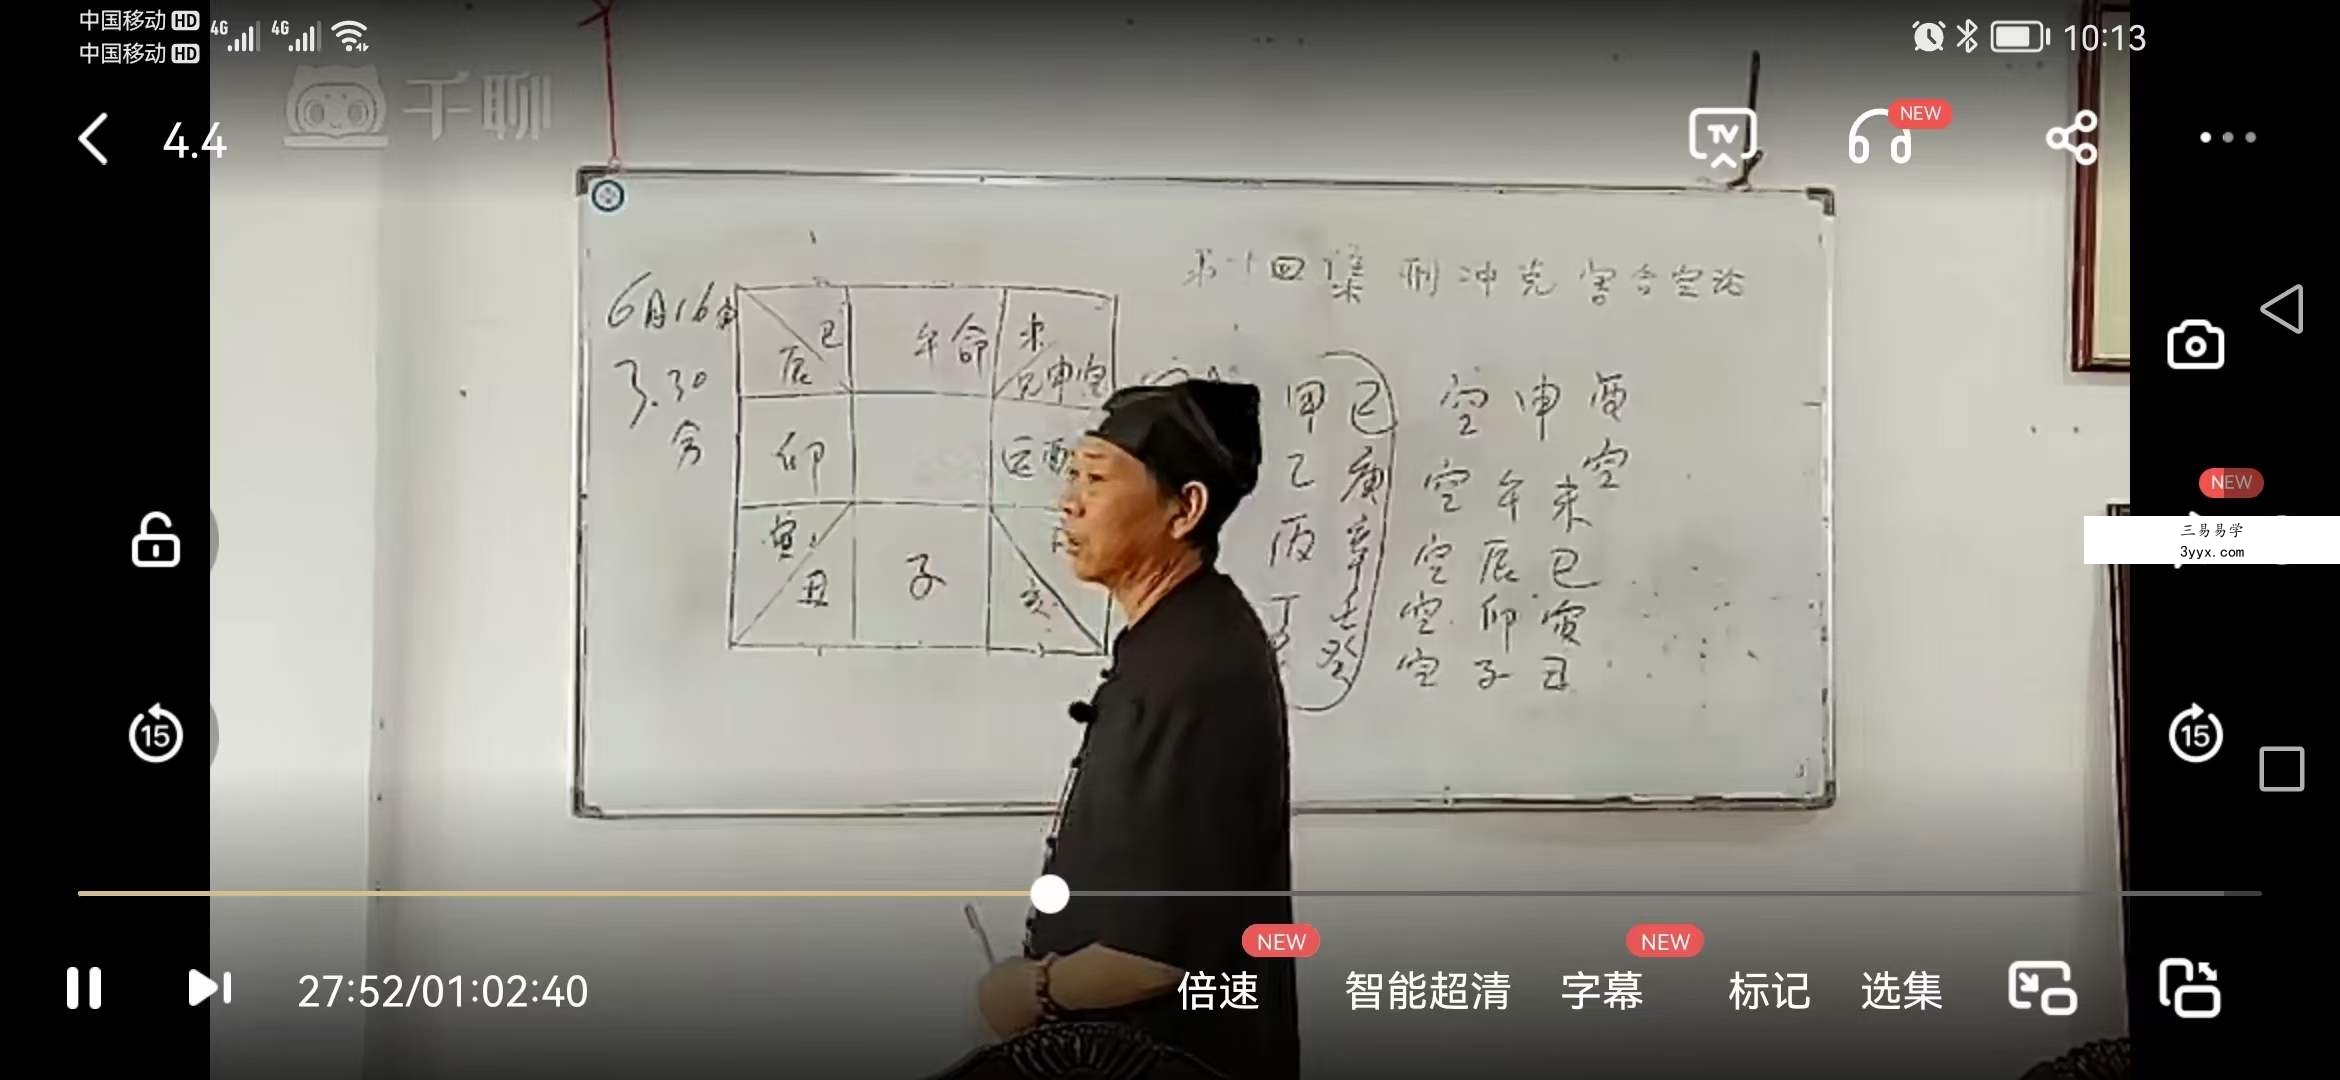 中国移动 HD 4G 4G
中国移动 HD
10:13
4.4
千聊
TV
NEW
第十四集 刑冲克害合空论
6月16
3.30
分
巳
辰
午命
未
申空
卯
酉
寅
丑
子
亥
甲己 空申酉
乙庚 空午未空
丙辛 空辰巳
丁壬 空卯寅
癸 空子丑
NEW
三易易学
3yyx.com
15
15
27:52/01:02:40
NEW
倍速
智能超清
NEW
字幕
标记
选集